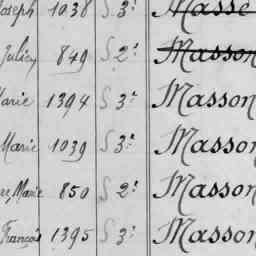 Joseph 1038 S 3e Masse
Julien 849 S 2e Masson
Marie 1394 S 3e Masson
Marie 1039 S 3e Masson
Marie 850 S 2e Masson
François 1395 S 3e Masson